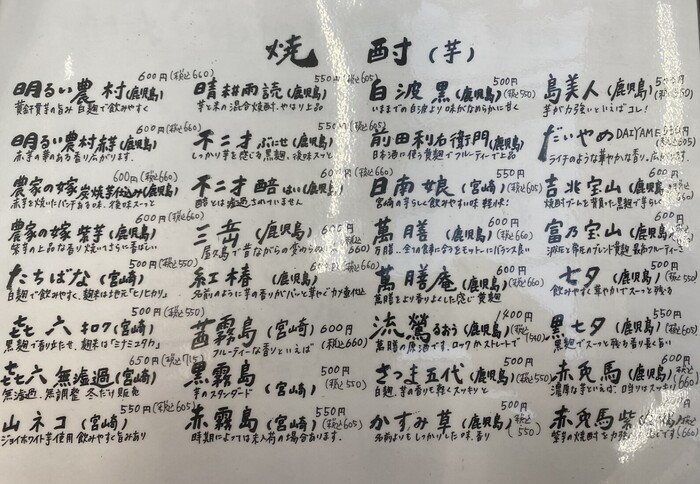 焼酎(芋)
明るい農村(鹿児島) 600円(税込660)
黄金千貫の旨み 白麹で飲みやすく
明るい農村赤芋(鹿児島) 600円(税込660)
赤芋の華のある香り広がります。
農家の嫁 炭焼芋仕込み(鹿児島) 600円(税込660)
赤芋を焼いたパンチある味、後味スーッと
農家の嫁 紫芋(鹿児島) 600円(税込660)
紫芋の上品な香り焼いてさらに香ばしい
たちばな(宮崎) 500円(税込550)
白麹で飲みやすく、麹米は地元「ヒノヒカリ」
㐂六 キロク(宮崎) 500円(税込550)
黒麹で香り立たせ、麹米は「ミナミユタカ」
㐂六 無濾過(宮崎) 650円(税込715)
無濾過、無調整 冬だけ販売
山ネコ(宮崎) 550円(税込605)
ジョイホワイト芋使用 飲みやすく旨みあり
晴耕雨読(鹿児島) 550円(税込605)
芋と米の混合焼酎。やはり上品
不二才 ぶにせ(鹿児島) 550円(税込605)
しっかり芋を感じる黒麹、後味スッと
不二才 醅 はい(鹿児島) 600円
醅とは濾過されていません
三岳(鹿児島) 600円
屋久島で昔ながらの変わらぬ
紅椿(鹿児島) 600円(税込660)
名前のように芋の香りがパーと華やぐカメ壺仕込
茜霧島(宮崎) 600円(税込660)
フルーティーな香りといえば
黒霧島(宮崎) 500円(税込550)
芋のスタンダード
赤霧島(宮崎) 550円(税込605)
時期によっては未入荷の場合あります。
白波 黒(鹿児島) 500円(税込550)
いままでの白波より味がなめらかに甘く
前田利右衛門(鹿児島) 600円(税込660)
日本酒に使う黄麹でフルーティーで上品
日南娘(宮崎) 550円(税込605)
宮崎の芋らしく飲みやすい味 軽快!
萬膳(鹿児島) 600円(税込660)
万膳…全ての食事に合うをモットーにバランス良い
萬膳庵(鹿児島) 600円(税込660)
萬膳をより香りよくした感じ 黄麹
流鶯 るおう(鹿児島) 1400円(税込1540)
萬膳の原酒です。ロックかストレートで
さつま五代(鹿児島) 500円(税込550)
白麹。芋の香りも軽くスッキリと
かすみ草(鹿児島) 500円(税込550)
名前よりもしっかりした味・香り
島美人(鹿児島)
芋が力強いといえばコレ!
だいやめ DAIYAME 500円(税込550)
ライチのような華やかな香り。広がります
吉兆宝山(鹿児島) 600円(税込660)
焼酎ブームを背負った黒麹で芋らしく
富乃宝山(鹿児島) 600円(税込660)
減圧と常圧のブレンド黄麹 最高フルーティー
七夕(鹿児島) 500円(税込550)
飲みやすく華やかでスーッと残る
黒七夕(鹿児島) 500円(税込550)
黒麹でスーッと残る香り長く旨い
赤兎馬(鹿児島) 600円(税込660)
濃厚な芋といえば、口当りはスッキリ
赤兎馬 紫
紫芋の焼酎を